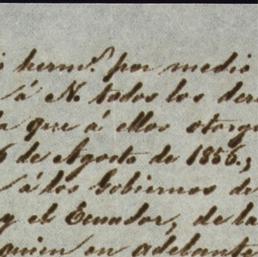 hermº por medio
á N. todos los der
que á ellos otorg
6 de Agosto de 1856,
á los Gobiernos de
y el Ecuador, de la
quien en adelante